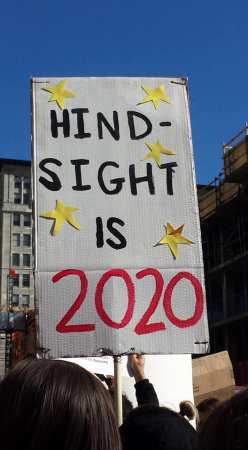 HIND-
SIGHT
IS
2020